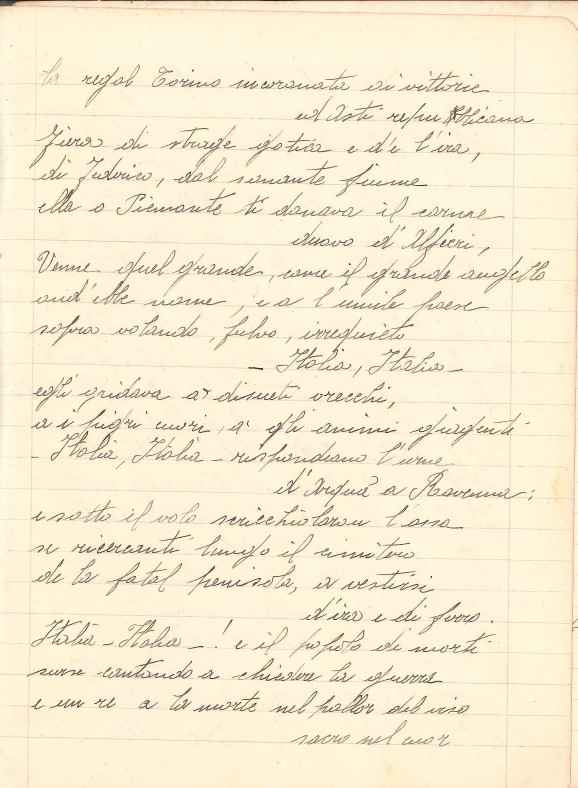 la regal Torino incoronata di vittorie
ed Asti repubblicana
Fiera di strage gotica e de l'ira,
di Federico, dal sonante fiume
ella o Piemonte ti donava il carme
nuovo d'Alfieri,
Venne quel grande, come il grande augello
ond'ebbe nome, e a l'umile paese
sopra volando, fulvo, irrequieto
– Italia, Italia –
egli gridava a' dissueti orecchi,
a i pigri cuori, a gli animi giacenti
– Italia, Italia – rispondeano l'urne
d'Arquà a Ravenna:
e sotto il volo scricchiolaron l'ossa
se ricercanti lungo il cimitero
de la fatal penisola, a vestirsi
d'ira e di ferro.
Italia – Italia – ! e il popolo di morti
surse cantando a chiedere la guerra
e un re a la morte nel pallor del viso
sacro nel cuor